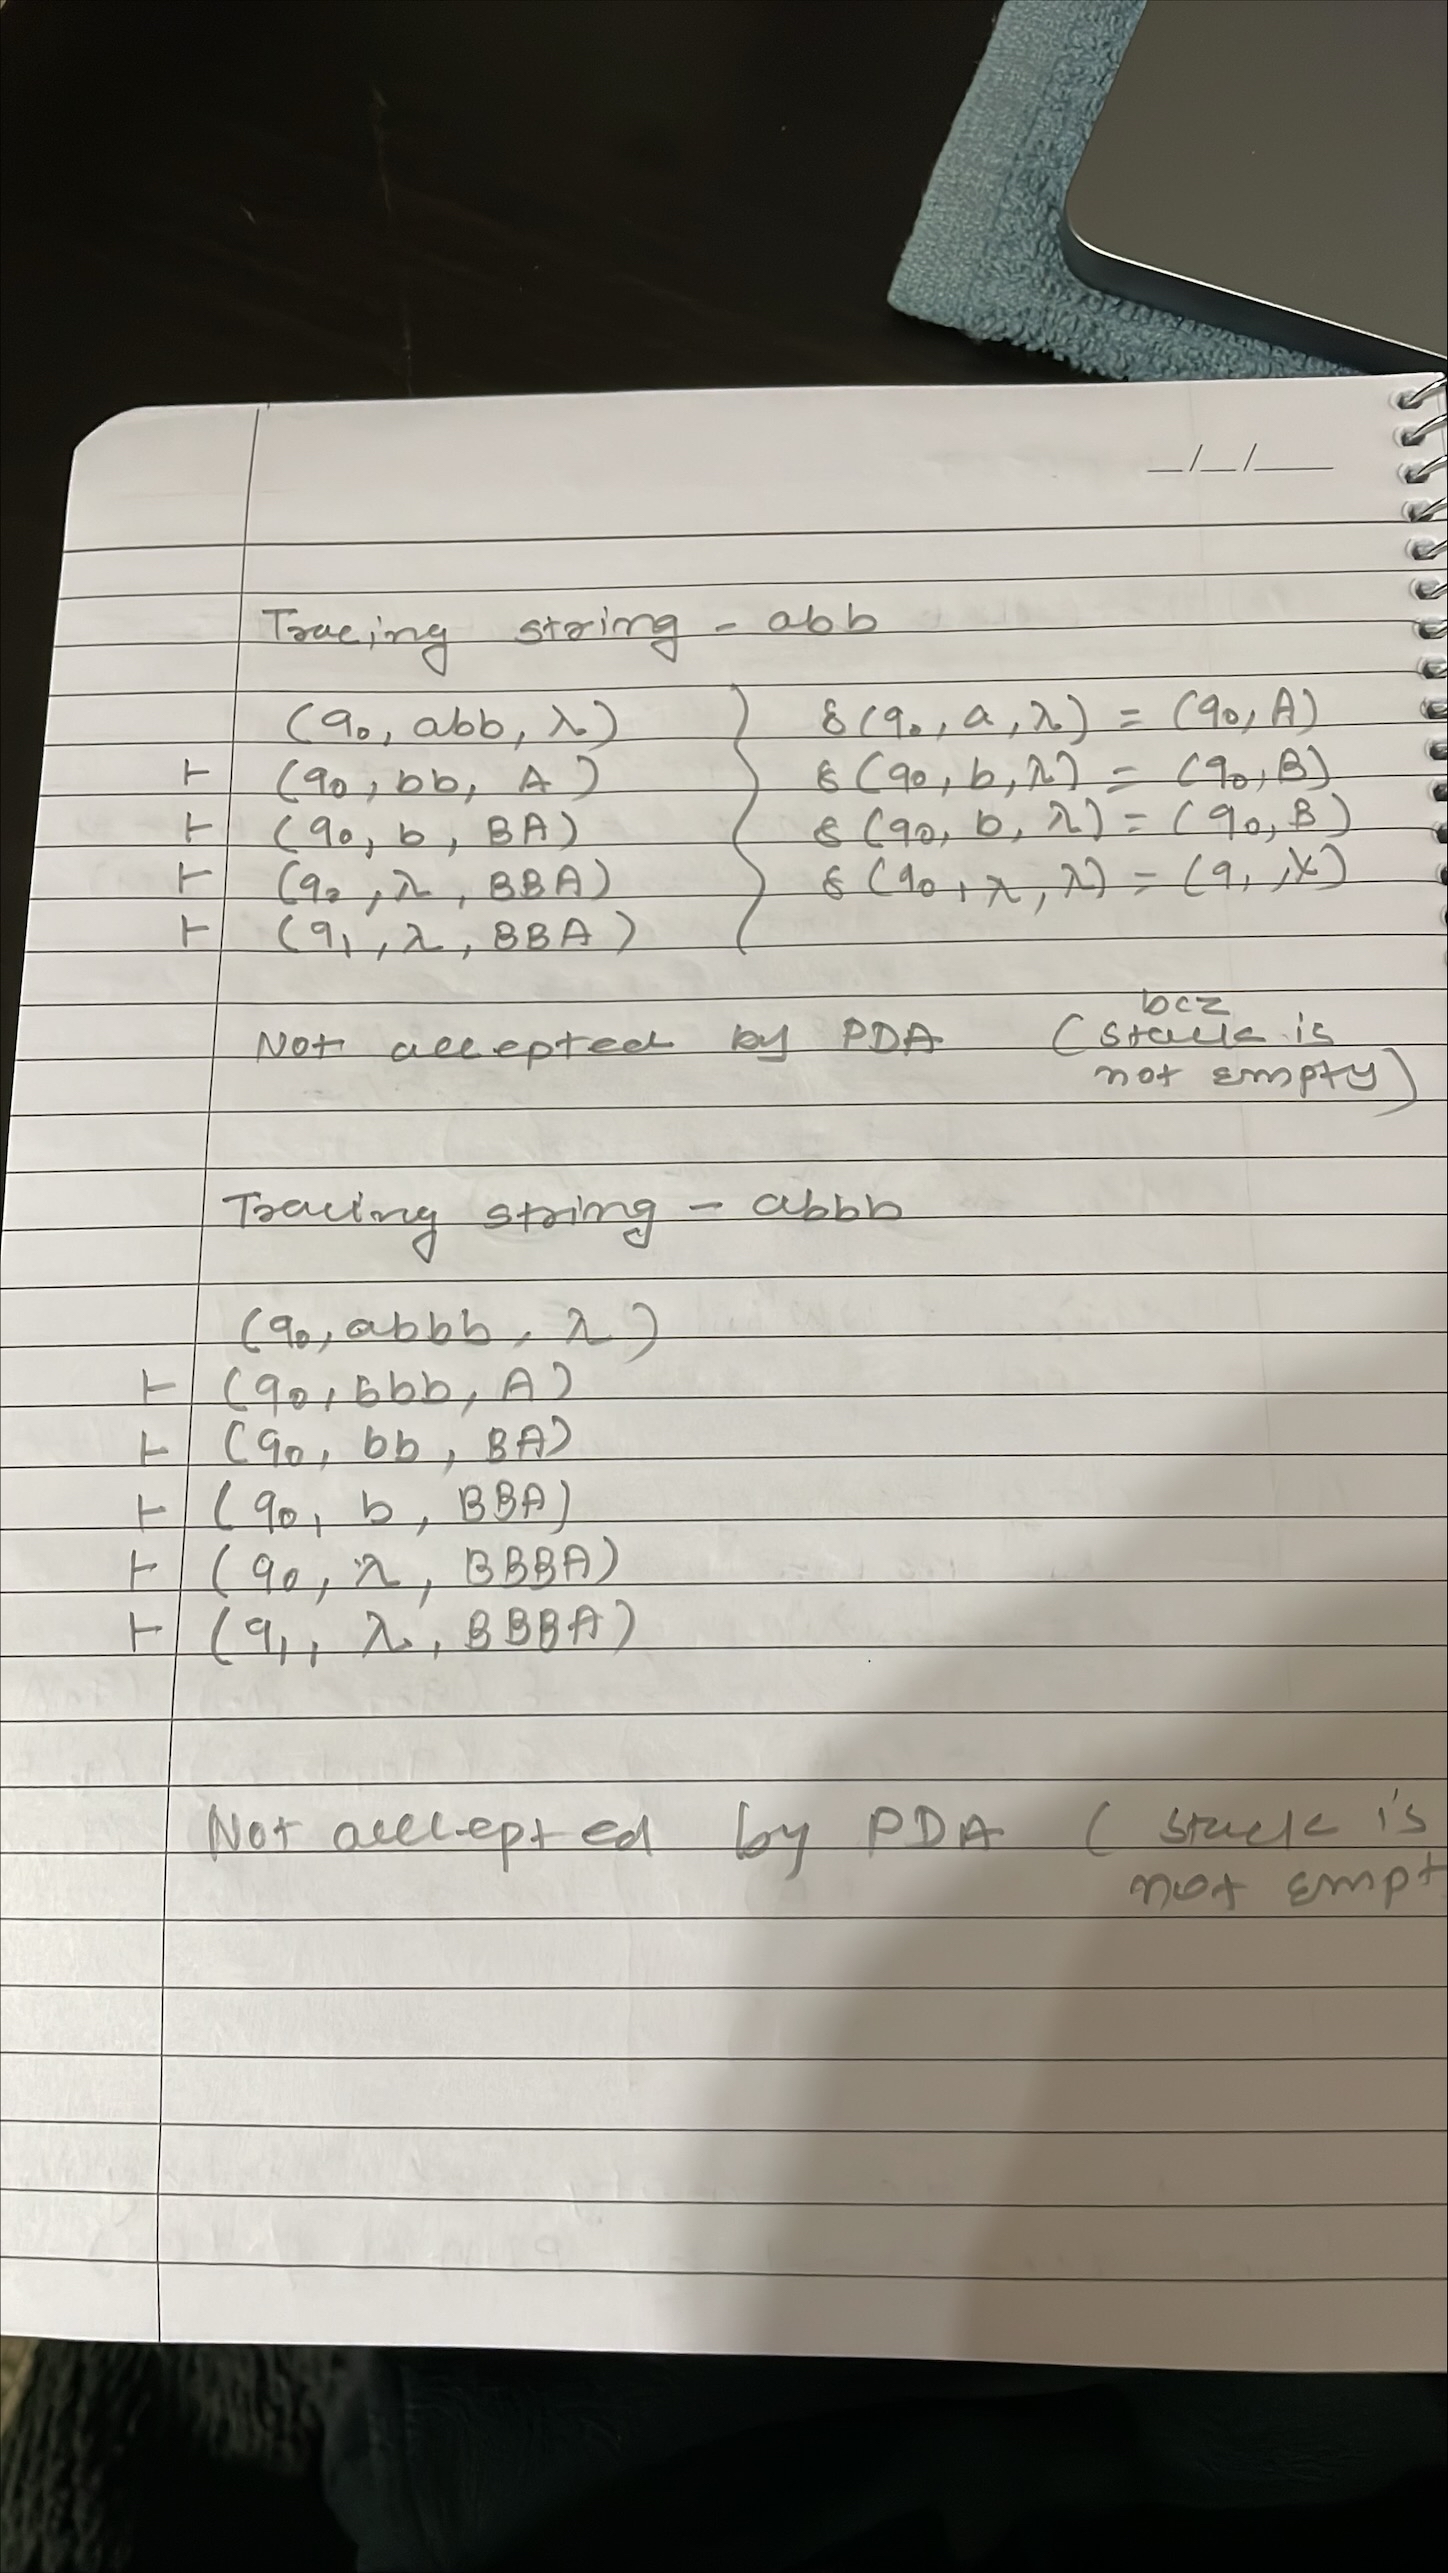 _/_/__
Tracing string - abb
(q0, abb, λ) } δ(q0, a, λ) = (q0, A)
⊢ (q0, bb, A) δ(q0, b, λ) = (q0, B)
⊢ (q0, b, BA) δ(q0, b, λ) = (q0, B)
⊢ (q0, λ, BBA) δ(q0, λ, λ) = (q1, λ)
⊢ (q1, λ, BBA)
bcz
Not accepted by PDA (stack is
not empty)
Tracing string - abbb
(q0, abbb, λ)
⊢ (q0, bbb, A)
⊢ (q0, bb, BA)
⊢ (q0, b, BBA)
⊢ (q0, λ, BBBA)
⊢ (q1, λ, BBBA)
Not accepted by PDA (stack is
not empt